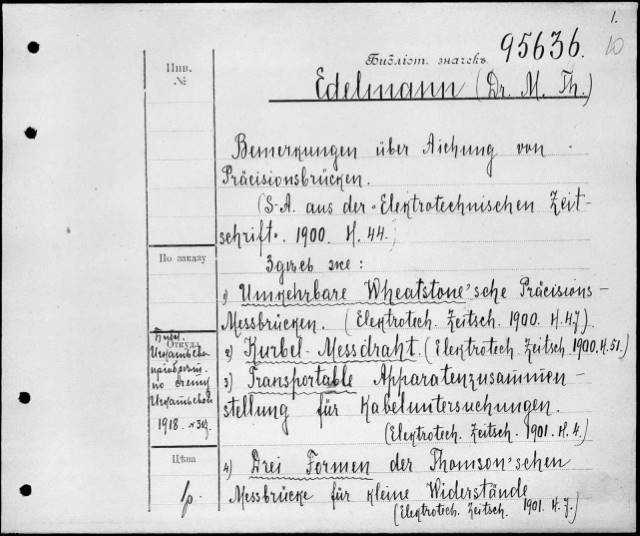 1.
10
Инв.
№
Библіот. значекъ 95636.
Edelmann (Dr. M. Th.)
Bemerkungen über Aichung von
Präcisionsbrücken.
(S-A. aus der "Elektrotechnischen Zeit-
schrift". 1900. H. 44.)
По заказу
Здѣсь же:
1) Umkehrbare Wheatstone'sche Präcisions-
Messbrücken. (Elektrotech. Zeitsch. 1900. H. 47.)
Откуда
2) Kurbel-Messdraht. (Elektrotech. Zeitsch. 1900. H. 51.)
3) Transportable Apparatenzusammen-
stellung für Kabeluntersuchungen.
(Elektrotech. Zeitsch. 1901. H. 4.)
по счету
1918.
Цѣна
4) Drei Formen der Thomson'schen
Messbrücke für kleine Widerstände
(Elektrotech. Zeitsch. 1901. H. 7.)